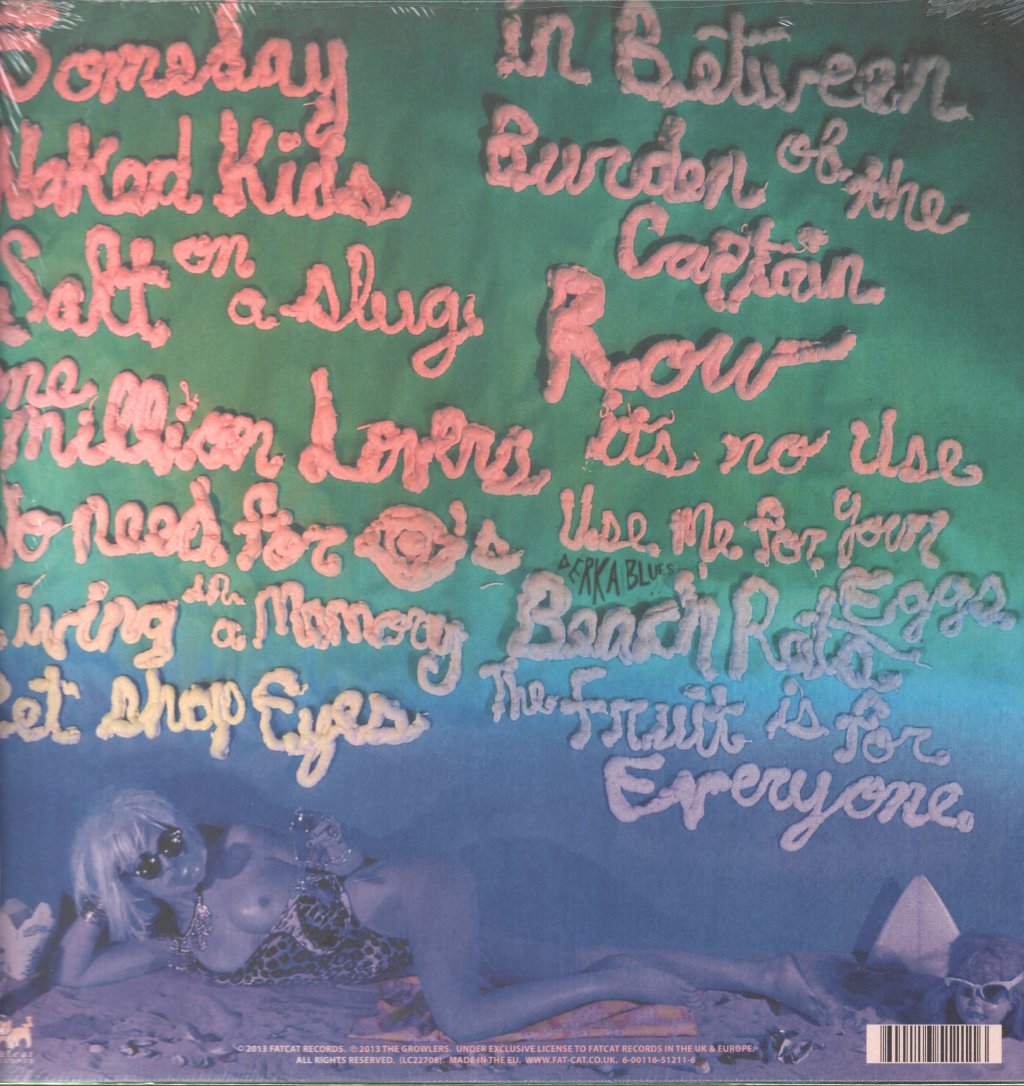 Someday
Naked Kids
Salt on
a slug
one
million Lovers
No need for 's
Living in
a Memory
Pet Shop Eyes
in Between
Burden of the
Captain
Row
it's no Use
Use Me for Your
Eggs
DERKA BLUES
Beach Rats
The Fruit is for
Everyone.
© 2013 FATCAT RECORDS. ℗ 2013 THE GROWLERS. UNDER EXCLUSIVE LICENSE TO FATCAT RECORDS IN THE UK & EUROPE.
ALL RIGHTS RESERVED. (LC22708). MADE IN THE EU. WWW.FAT-CAT.CO.UK. 6-00116-51211-6